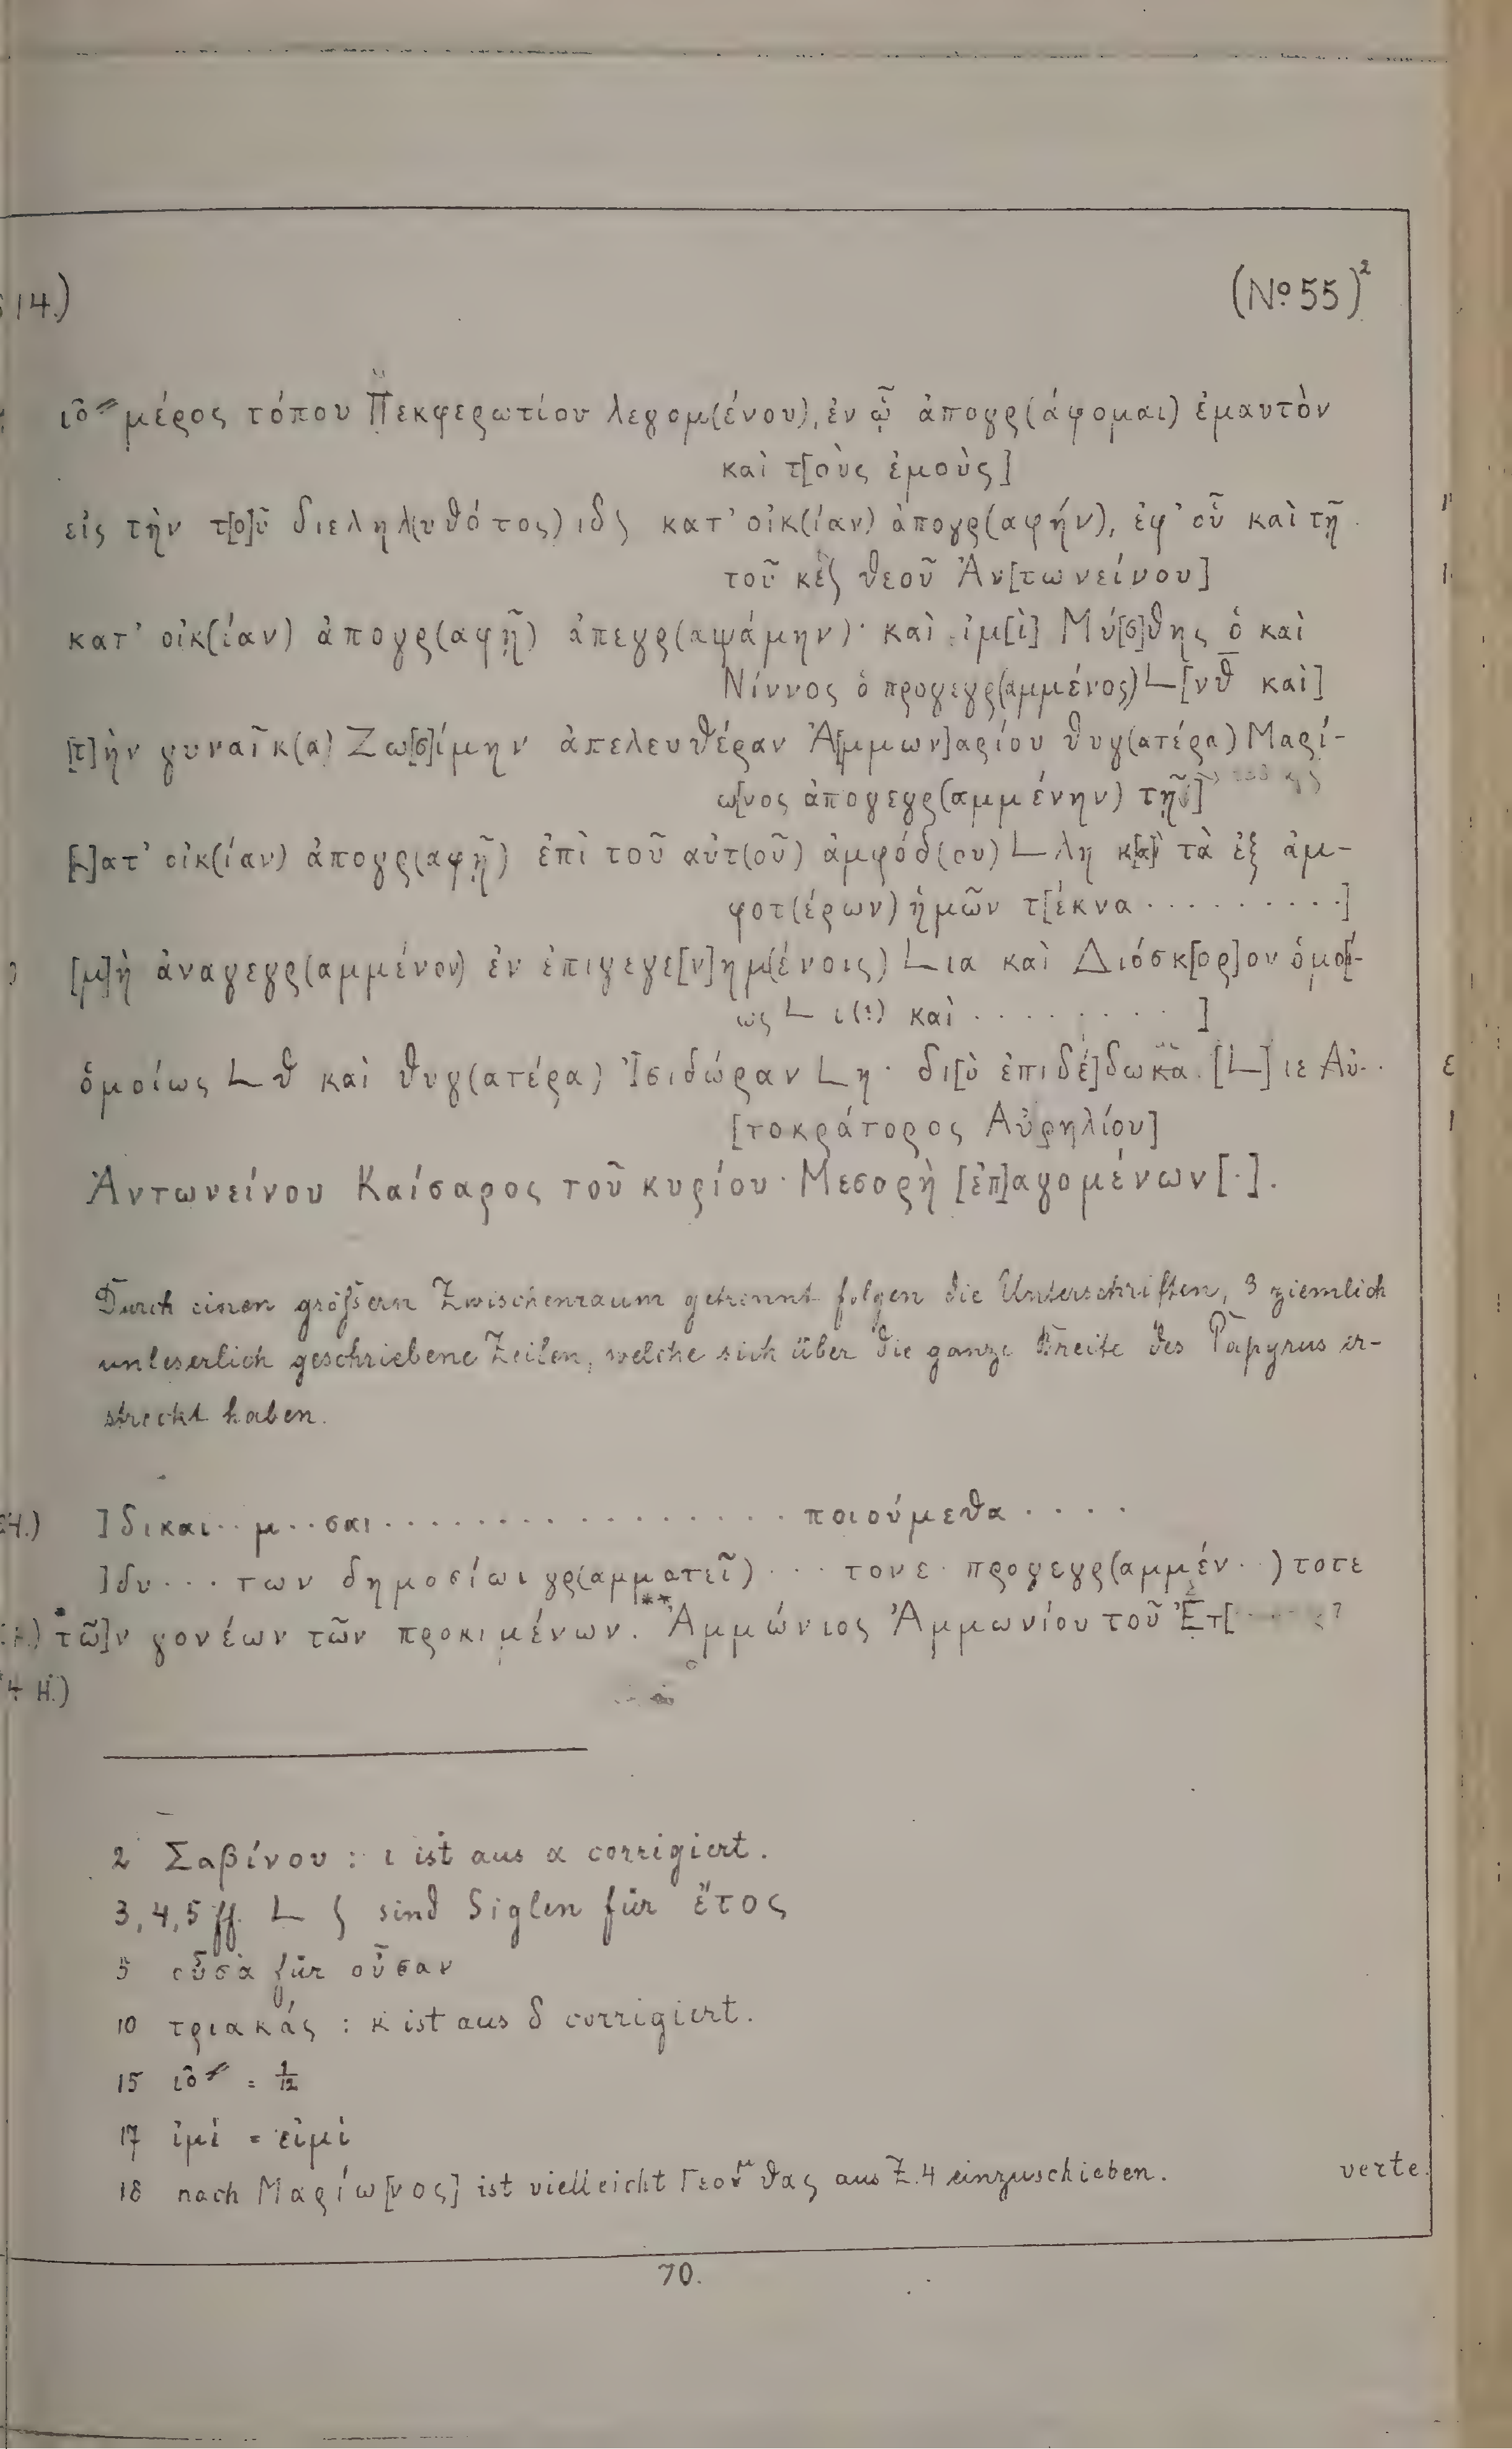 14.)
(No 55)²
ιβ̅ μέρος τόπου Πεκφερωτίου λεγομ(ένου), ἐν ᾧ ἀπογρ(άφομαι) ἐμαυτὸν
καὶ τ[οὺς ἐμοὺς]
εἰς τὴν τ[ο]ῦ διεληλ(υθότος) ιδ𐅹 κατ' οἰκ(ίαν) ἀπογρ(αφήν), ἐφ' οὗ καὶ τῇ
τοῦ κ 𐅹 θεοῦ Ἀν[τωνείνου]
κατ' οἰκ(ίαν) ἀπογρ(αφῇ) ἀπεγρ(αψάμην)· καὶ ἰμ[ὶ] Μύ[σ]θης ὁ καὶ
Νίννος ὁ προγεγρ(αμμένος) 𐅹 [νθ̅ καὶ]
[τ]ὴν γυναῖκ(α) Ζω[σ]ίμην ἀπελευθέραν Ἀ[μμων]αρίου θυγ(ατέρα) Μαρί-
ω[νος ἀπογεγρ(αμμένην) τῇ]
[κ]ατ' οἰκ(ίαν) ἀπογρ(αφῇ) ἐπὶ τοῦ αὐτ(οῦ) ἀμφόδ(ου) 𐅹 λη κ[α]ὶ τὰ ἐξ ἀμ-
φοτ(έρων) ἡμῶν τ[έκνα . . . . . . . . .]
[μ]ὴ ἀναγεγρ(αμμένον) ἐν ἐπιγεγε[ν]ημ(ένοις) 𐅹 ια καὶ Διόσκ[ορ]ον ὁμο[ί-
ως 𐅹 ι(?) καὶ . . . . . . . . ]
ὁμοίως 𐅹 θ καὶ θυγ(ατέρα) Ἰσιδώραν 𐅹 η· δι[ὸ ἐπιδέ]δωκα. [𐅹] ιε Αὐ..
[τοκράτορος Αὐρηλίου]
Ἀντωνείνου Καίσαρος τοῦ κυρίου· Μεσορὴ [ἐπ]αγομένων [.].
Durch einen größern Zwischenraum getrennt folgen die Unterschriften, 3 ziemlich
unleserlich geschriebene Zeilen, welche sich über die ganze Breite des Papyrus er-
streckt haben.
]δικαι.. μ..σαι . . . . . . . . . . . . . . . ποιούμεθα . . . .
]δυ... των δημοσίωι γρ(αμματεῖ) ... τονε. προγεγρ(αμμέν..)τοτε
τῶ]ν γονέων τῶν προκιμένων. ** Ἀμμώνιος Ἀμμωνίου τοῦ Ἑτ[
4 H.)
2 Σαβίνου : ι ist aus α corrigiert.
3, 4, 5 ff. 𐅹 𐅹 sind Siglen für ἔτος
5 οὖσα für οὖσαν
10 τριακάς : κ ist aus δ corrigiert.
15 ιβ̅ = 1/12
17 ἰμί = εἰμὶ
18 nach Μαρίω[νος] ist vielleicht aus Z. 4 einzuschieben.
verte.
70.